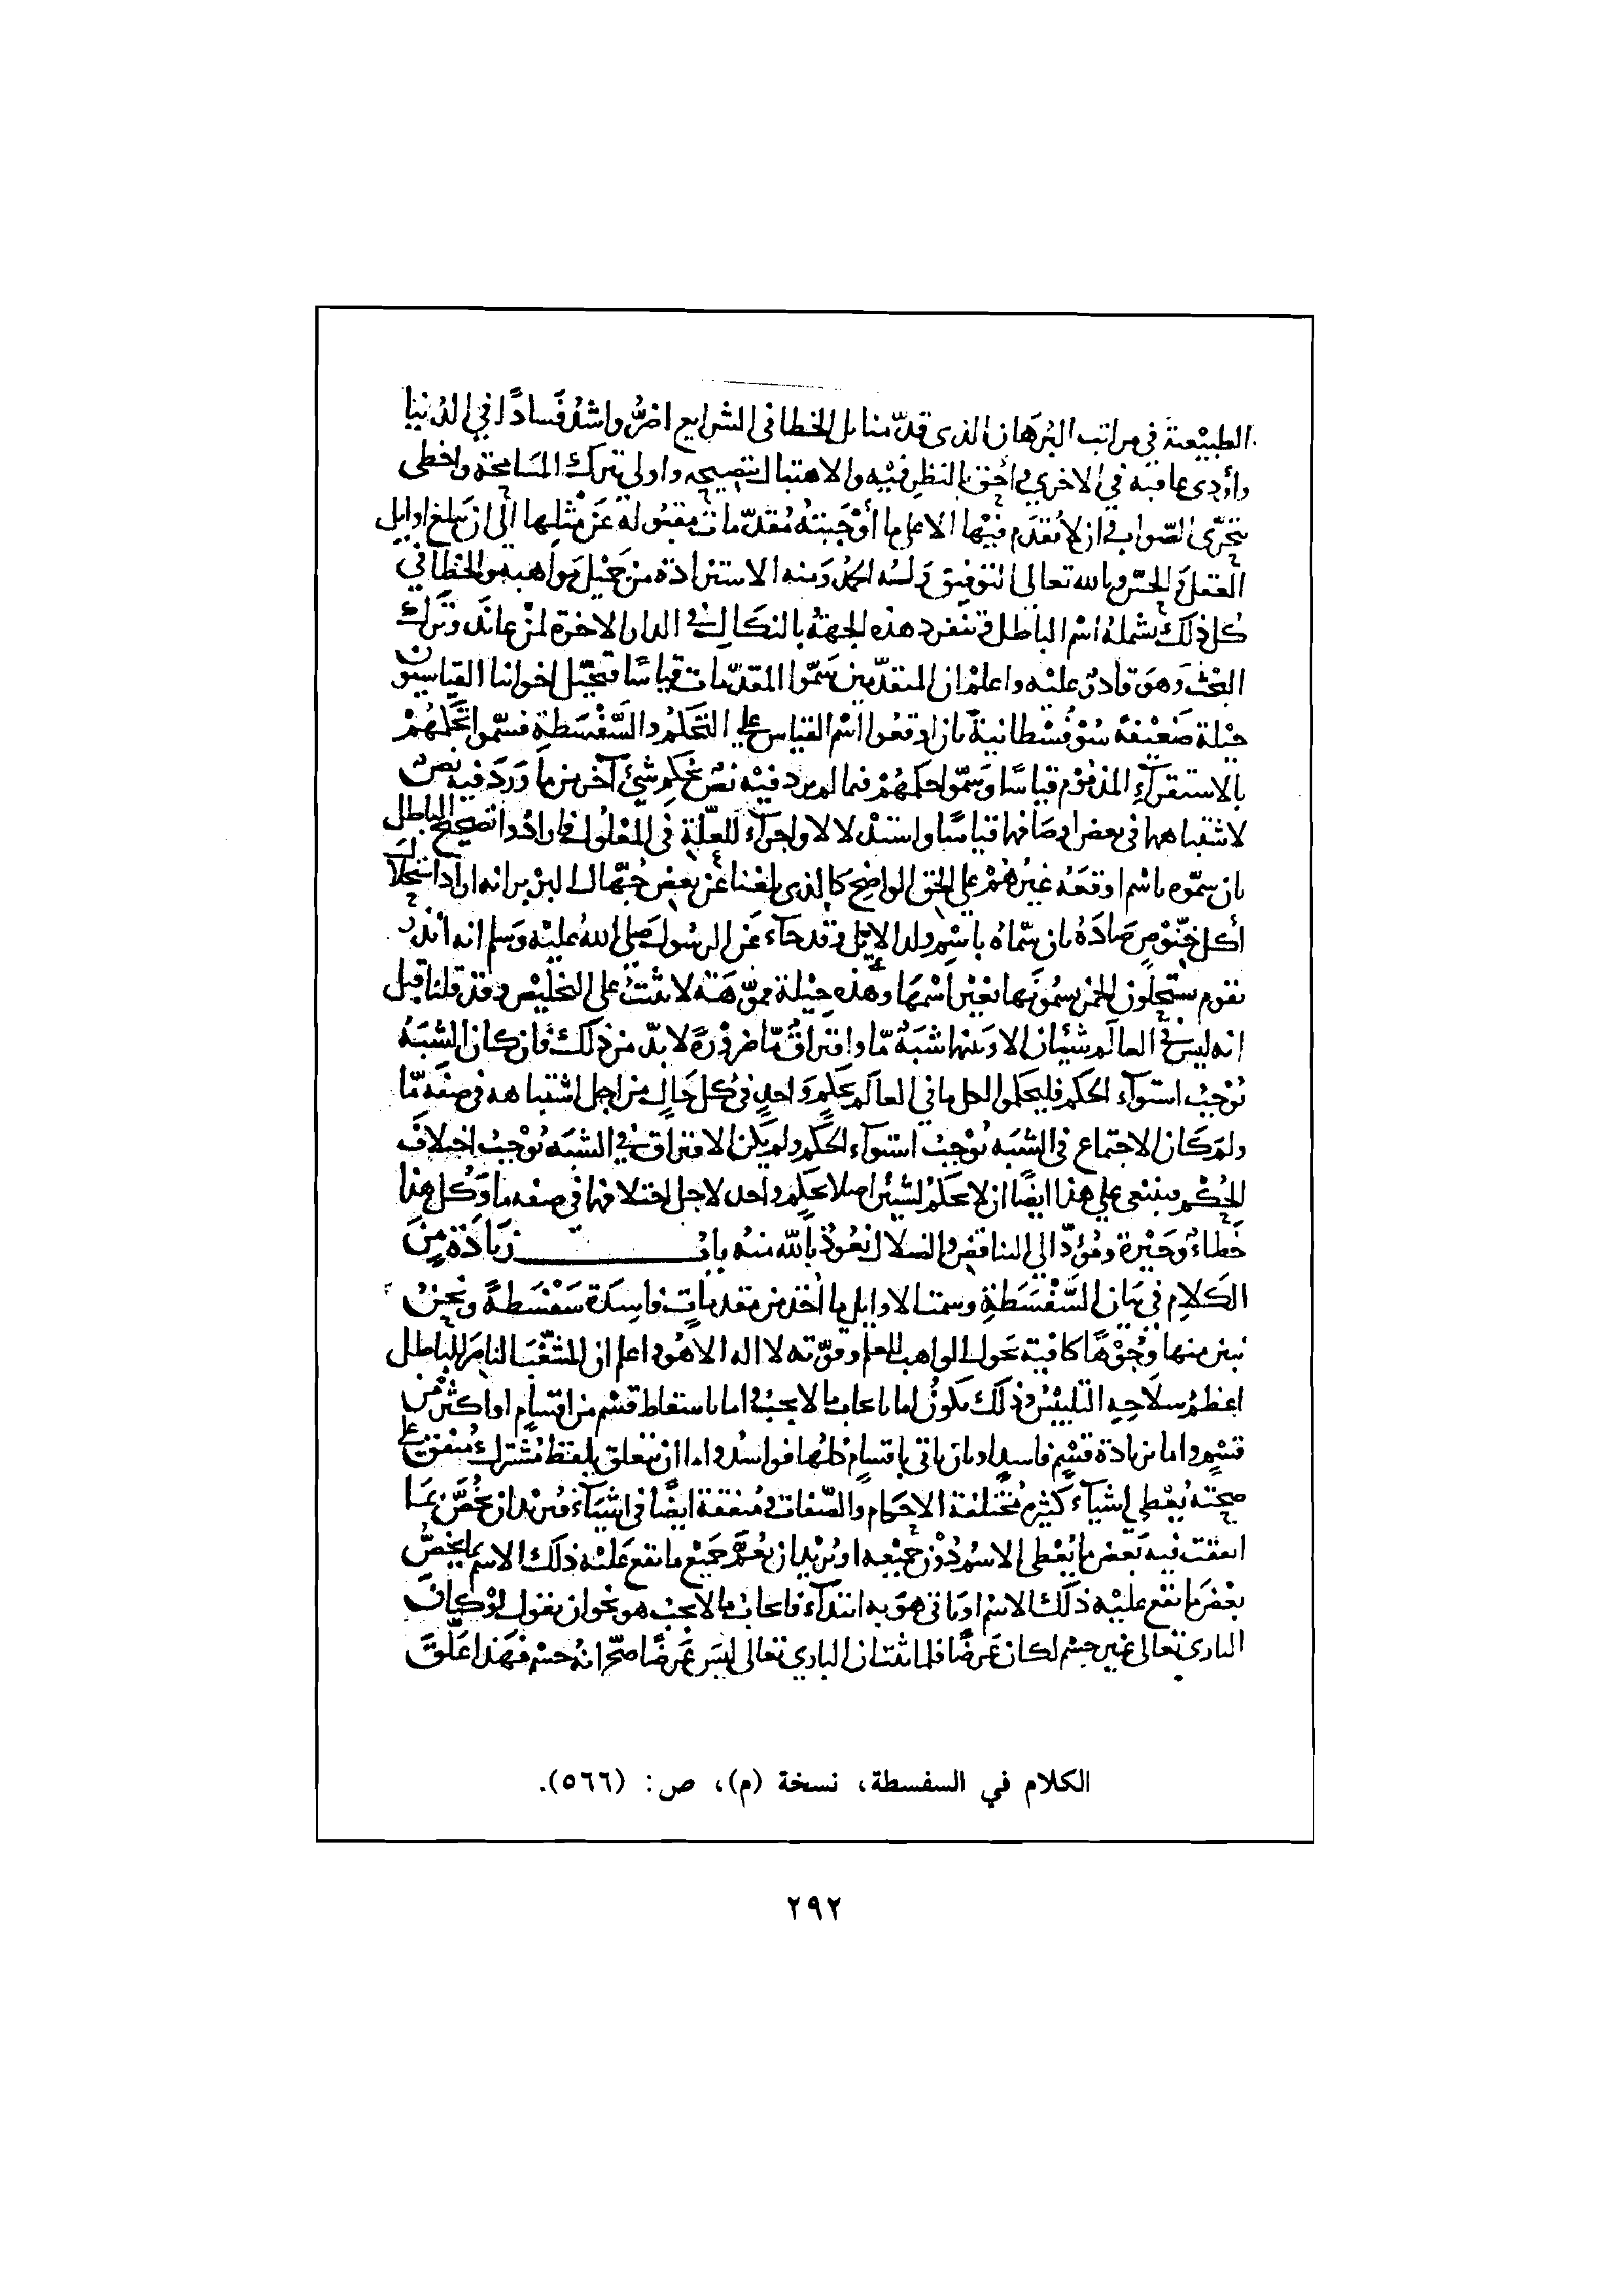 الطبيعة في مراتب البرهان الذي قدمنا بل الخطا في الشرايع اضر واشد فسادا في الدنيا
وأردى عاقبة في الاخرى واحق بالنظر فيه والاهتبال بتصحيحه واولى بترك المسامحة واحظى
بتحري الصواب في ان لا نقدم فيها الا على ما أوجبته مقدمات مقبولة عن مثلها الى ان تبلغ اوايل
العقل والحس وبالله تعالى التوفيق وله الحمد ومنه الاستزادة من جميل مواهبه والخطأ في
كل ذلك يشمله اسم الباطل وتنفرد هذه الجهة بالنكال في الدار الاخرة لمن عاند وترك
البحث وهو قادر عليه واعلم ان المتقدمين سموا المقدمات قياسا فتحيل اخواننا القياسيون
حيلة ضعيفة سوفسطانية بان اوقعوا اسم القياس على التحكم والسفسطة فسموا تحكمهم
بالاستقرآء المذموم قياسا وسموا حكمهم فيما لم يرد فيه نص بحكم شيئ آخر مما ورد فيه نص
لاشتباههما في بعض اوصافهما قياسا واستدلالا واجرآء للعلة في المعلول فارادوا تصحيح الباطل
بان سموه باسم اوقعه غيرهم على الحق الواضح كالذي بلغنا عن بعض جهال البربر انه اراد استحلال
أكل خنوص صاده بان سماه باسم ولد الإيل وقد جآء عن الرسول صلى الله عليه وسلم انه أنذر
بقوم يستحلون الخمر يسمونها بغير اسمها وهذه حيلة مموهة لا تثبت على التخليص وقد قلنا قبل
انه ليس في العالم شيئان الا وبينهما شبه ما وافتراق ما ضرورة لا بد من ذلك فان كان الشبه
يوجب استوآء الحكم فليحكموا لكل ما في العالم بحكم واحد في كل حال من اجل اشتباهه في صفة ما
ولم كان الاجتماع في الشبه يوجب استوآء الحكم ولم يكن الافتراق في الشبه يوجب اختلاف
الحكم فينبغي على هذا ايضا ان لا يحكم لشيئين اصلا بحكم واحد لاجل اختلافهما في صفة ما وكل هذا
خطاء وحيرة ومؤد الى التناقض والضلال نعوذ بالله منه باب زيادة من
الكلام في بيان السفسطة وسمتنا الاوايل ما اخذ من مقدمات فاسدة سفسطة ونحن
نبين منها وجوها كافية بحول الواهب للعلم وقوته لا اله الا هو واعلم ان المشغب الناصر للباطل
اعظم سلاحه التلبيس وذلك يكون اما بايجاب ما لا يجب واما باسقاط قسم من اقسام او اكثر من
قسم واما بزيادة قسم فاسد او بان ياتي باقسام كلها فواسد واما ان يتعلق بلفظ مشترك متفق على
صحته يعطي اشيآء كثيرة مختلفة الاحكام والصفات ومتفقة ايضا في اشيآء فيريد ان يخص بما
اتفقت فيه بعض ما يعطي الاسم دون جميعه او يريد ان يعم جميع ما يقع عليه ذلك الاسم بما يخص
بعض ما يقع عليه ذلك الاسم او ياتي هو به ابتدآء فايجاب ما لا يجب هو نحو ان يقول لو كان
الباري تعالى غير جسم لكان عرضا فلما ثبت ان الباري تعالى ليس عرضا صح انه جسم فهذا علق
الكلام في السفسطة، نسخة (م)، ص: (٥٦٦).
٢٩٢